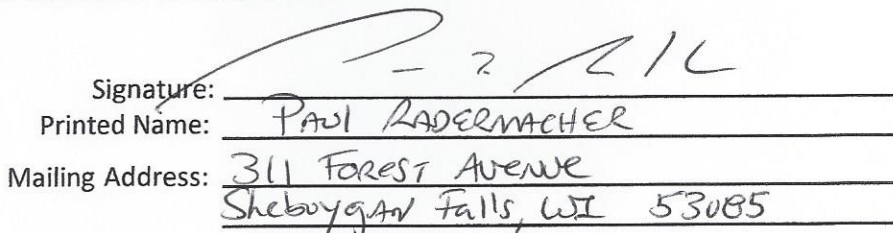 Signature:
Printed Name: PAUL RADERMACHER
Mailing Address: 311 FOREST AVENUE
Sheboygan Falls, WI 53085